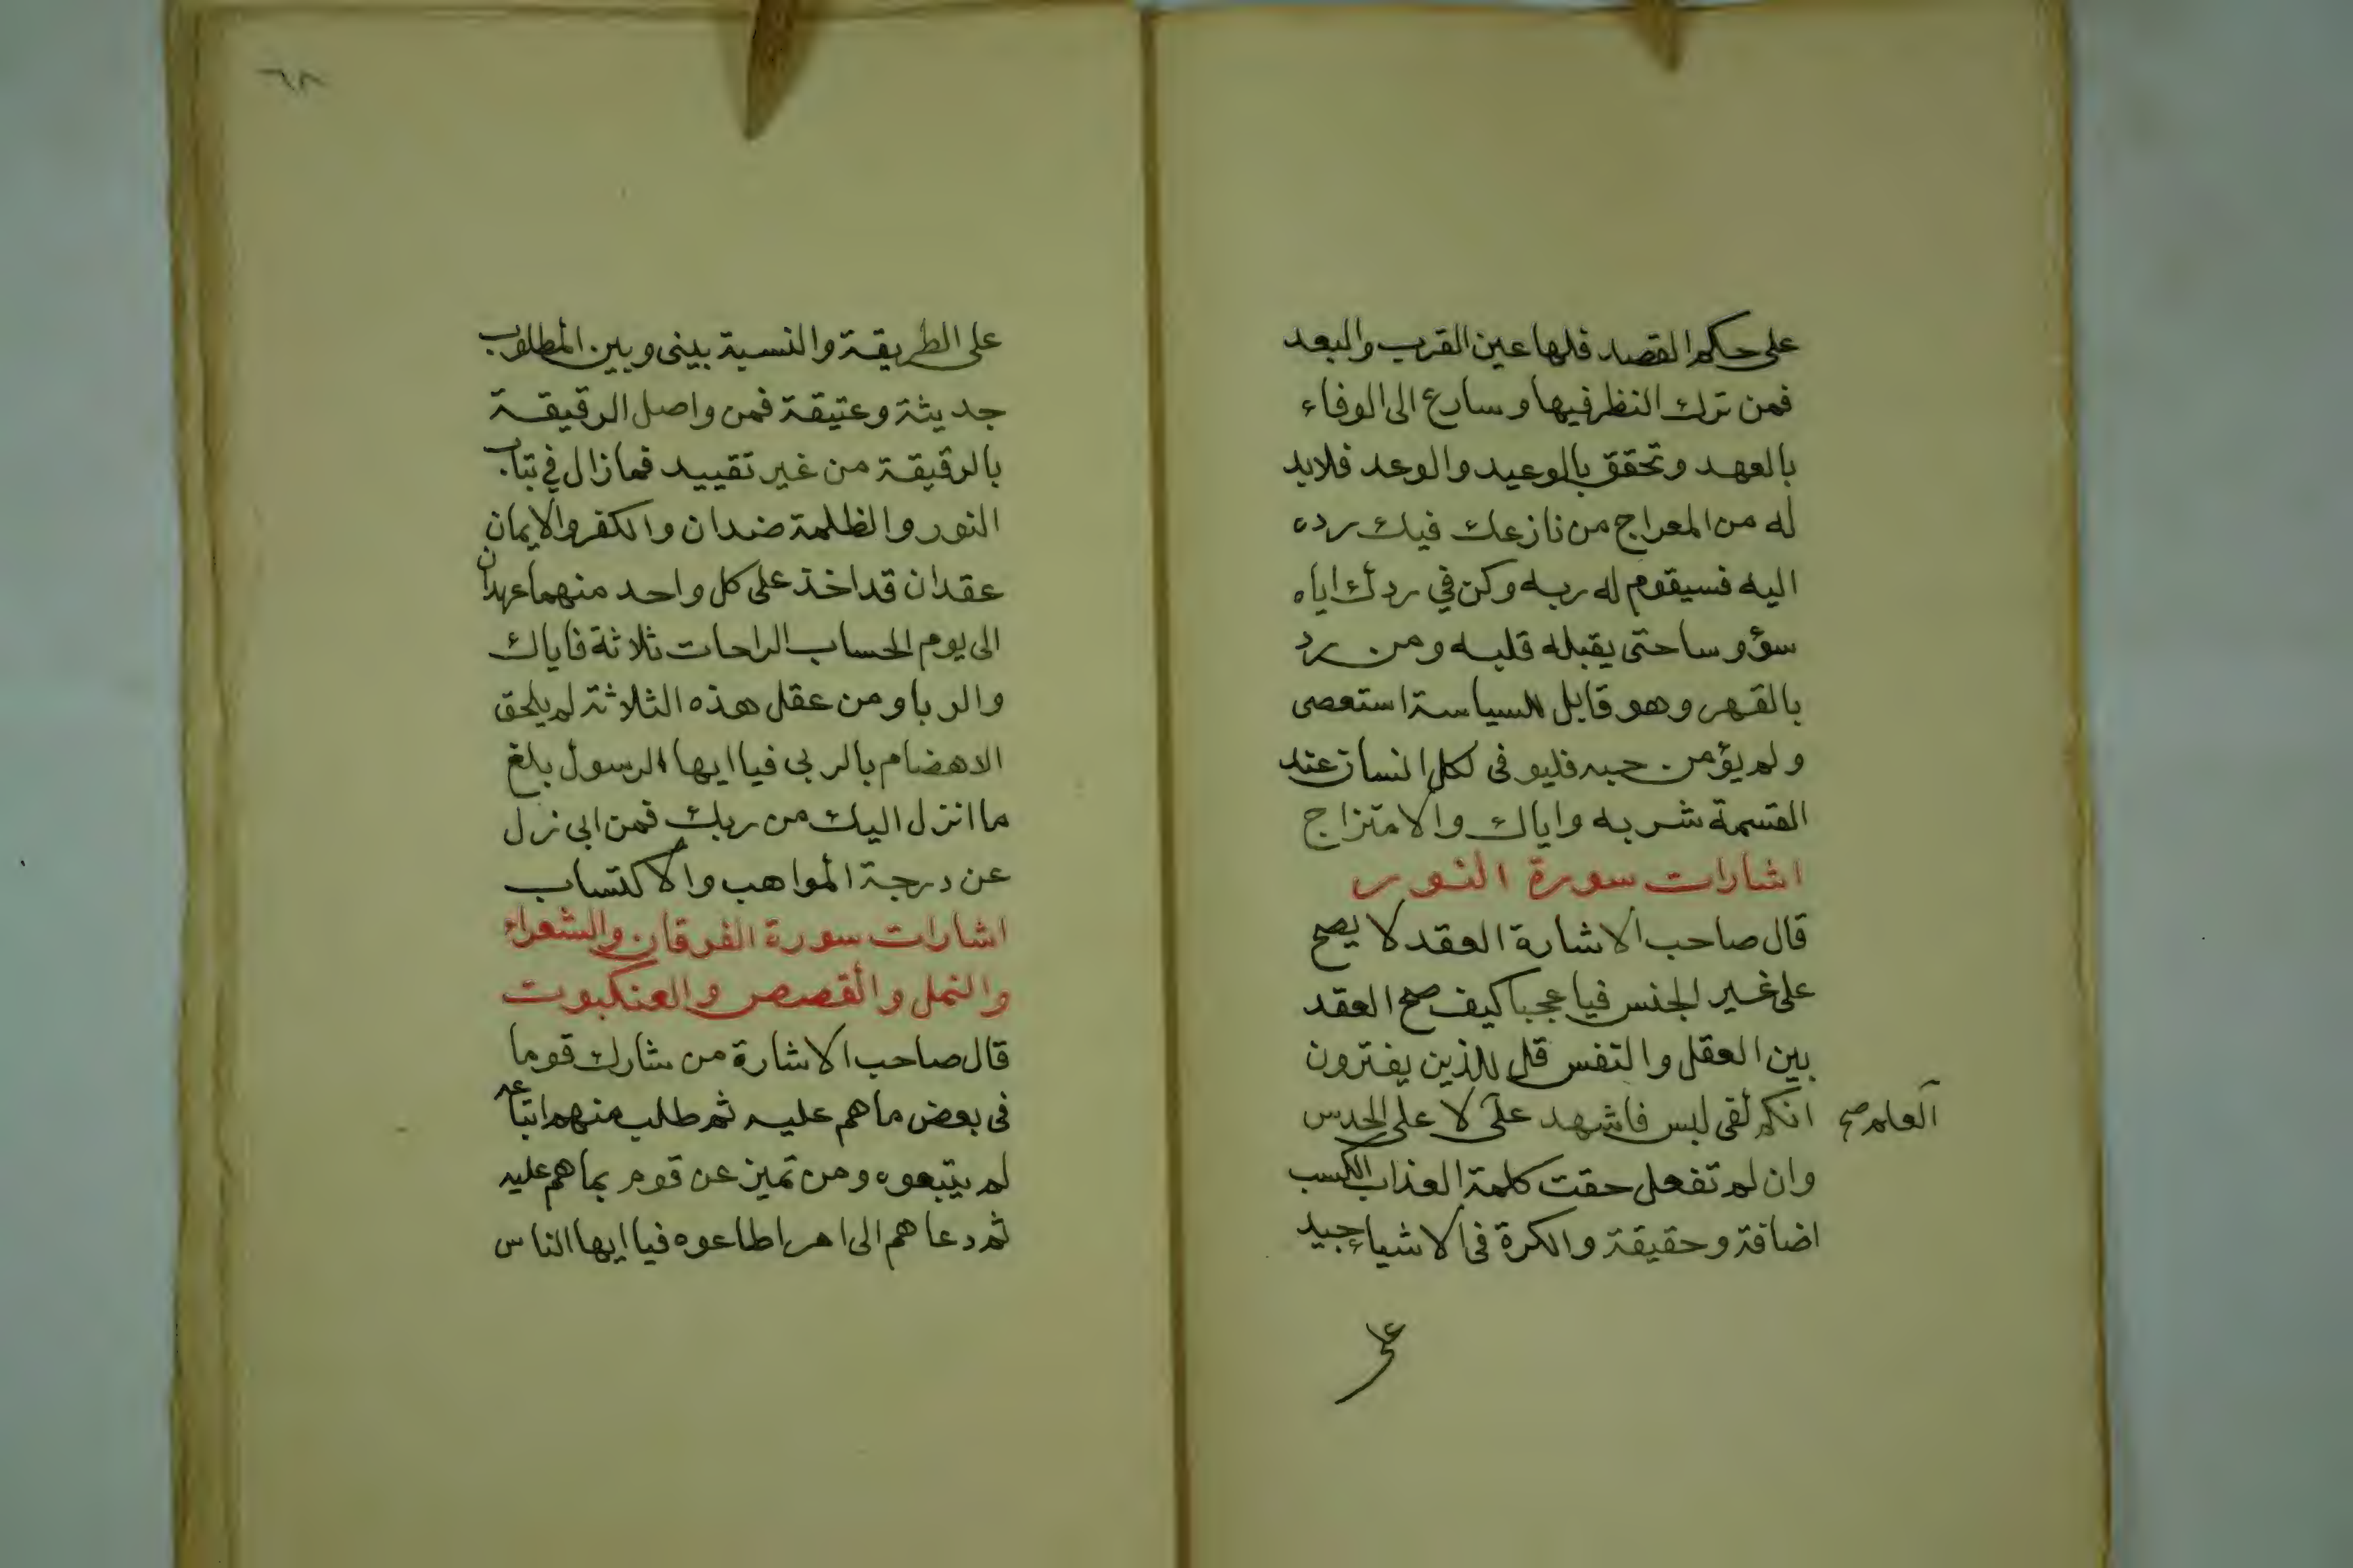 على حكم القصد فلها عين القرب والبعد
فمن ترك النظر فيها وسارع الى الوفاء
بالعهد وتحقق بالوعيد والوعد فلابد
له من المعراج من نازعك فيك رده
اليه فسيقوم له ربه وكن في ردك اياه
سؤوسا حتى يقبله قلبه ومن رد
بالقهر وهو قابل للسياسة استعصى
ولم يؤمن حبه فليوفى لكل انسان عند
القسمة شربه واياك والامتزاج
اشارات سورة النور
قال صاحب الاشارة العقد لا يصح
على غير الجنس فيا عجبا كيف صح العقد
بين العقل والنفس قل للذين يفترون
انكم لفى لبس فاشهد على لا على الحدس
العلم صح
وان لم تفعل حقت كلمة العذاب الكسب
اضافة وحقيقة والكرة فى الاشياء جيد
على
٦٨
على الطريقة والنسبة بينى وبين المطلوب
جديثة وعتيقة فمن واصل الرقيقة
بالرقيقة من غير تقييد فمازال في تباب
النور والظلمة ضدان والكفر والايمان
عقدان قد اخذ على كل واحد منهما عهدان
الى يوم الحساب الراحات ثلاثة فاياك
والربا ومن عقل هذه الثلاثة لم يلحق
الاهضام بالربى فيا ايها الرسول بلغ
ما انزل اليك من ربك فمن ابى نزل
عن درجة المواهب والاكتساب
اشارات سورة الفرقان والشعراء
والنمل والقصص والعنكبوت
قال صاحب الاشارة من شارك قوما
فى بعض ما هم عليه ثم طلب منهم اتباعه
لم يتبعوه ومن تميز عن قوم بما هم عليه
ثم دعاهم الى امر اطاعوه فيا ايها الناس